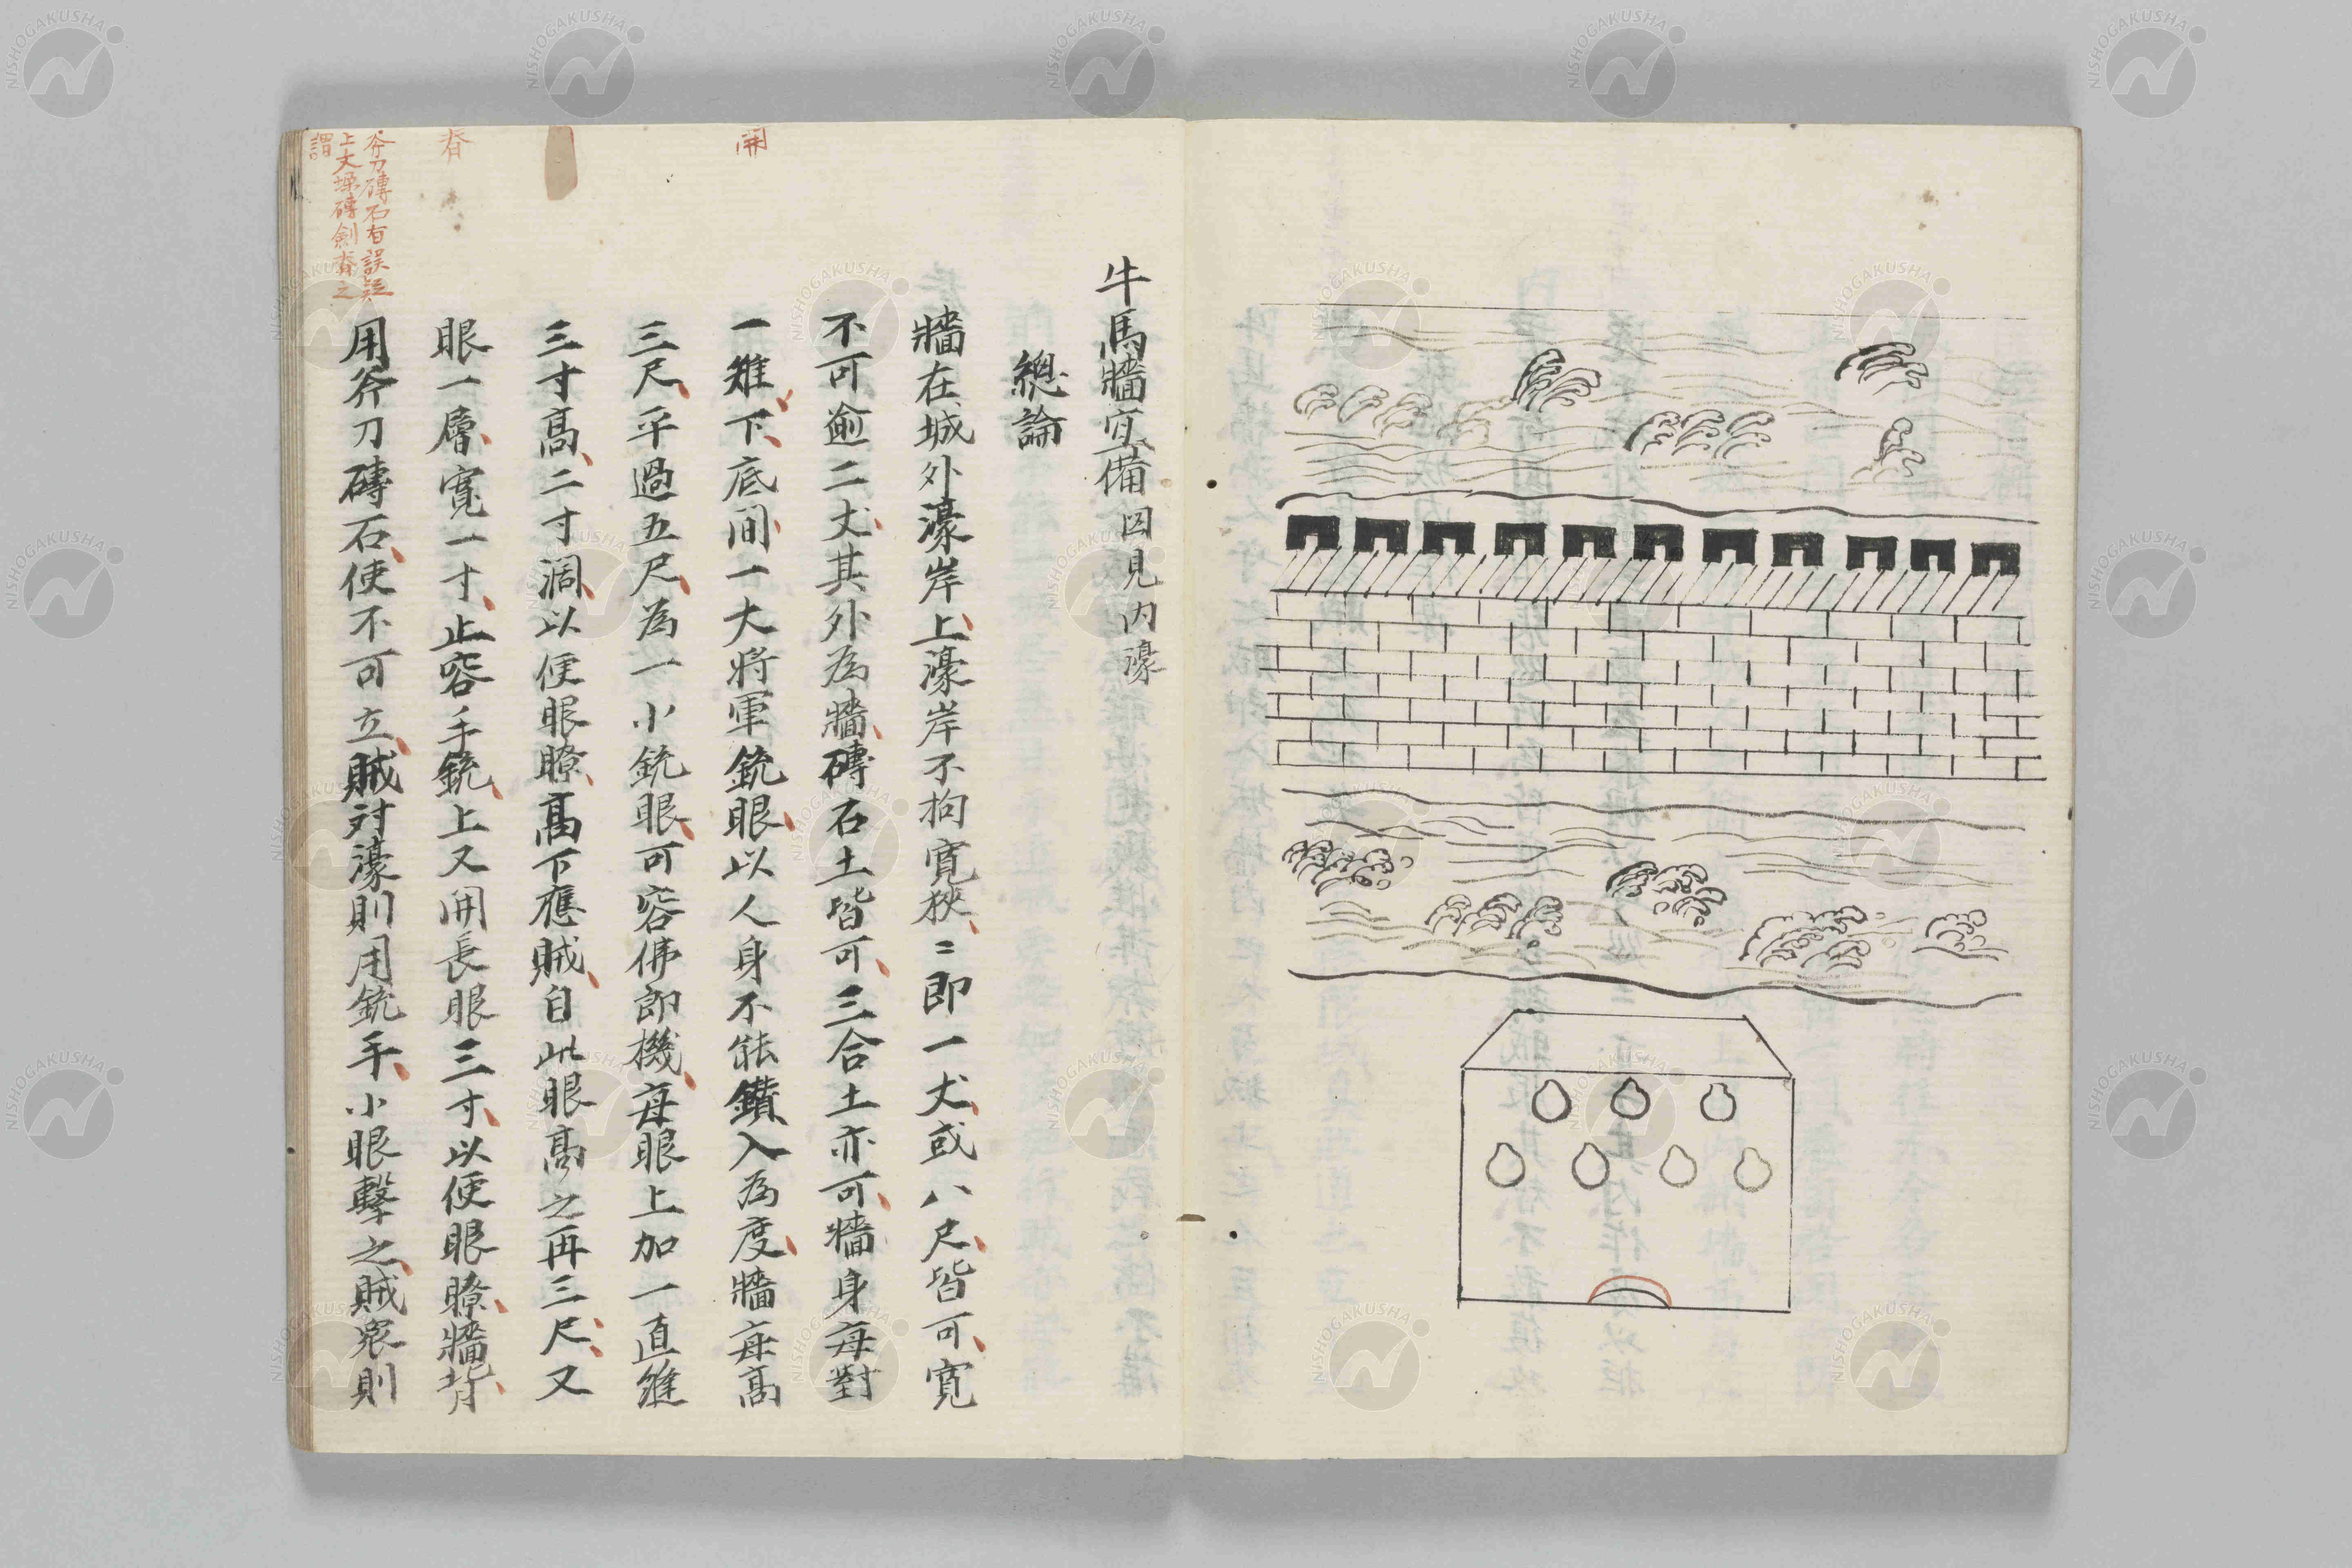 牛馬牆宜備 図見内濠
總論
牆在城外濠岸上濠岸不拘寛狹〻即一丈或八尺皆可寛
不可逾二丈其外為牆磚石土皆可三合土亦可牆身毎對
一雉下底間一大將軍銃眼以人身不能鑚入為度牆毎高
三尺平過五尺為一小銃眼可容佛郎機毎眼上加一直縫
三寸高二寸濶以便眼瞭高下應賊自此眼高之再三尺又
眼一層寛一寸止容手銃上又開長眼三寸以便眼瞭牆背
用斧刀磚石使不可立賊対濠則用銃手小眼擊之賊衆則
開
脊
斧刀磚石有誤
上文垜磚劍脊之
謂
NISHOGAKUSHA